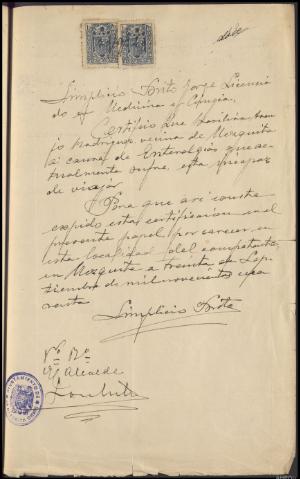 Simplicio Brito Jorge Licencia
do en Medicina y Cirugia,
Certifico Que
jo Rodriguez vecina de Mezquita
a causa de Enteralgias que ac-
tualmente sufre, esta incapaz
de viajar
Para que asi conste
expido esta certificacion en el
presente papel por carecer en
esta localidad del competente
en Mezquita a treinta de Sep-
tiembre de mil novecientos cua
renta
Simplicio Brito
Vº Bº
El Alcalde